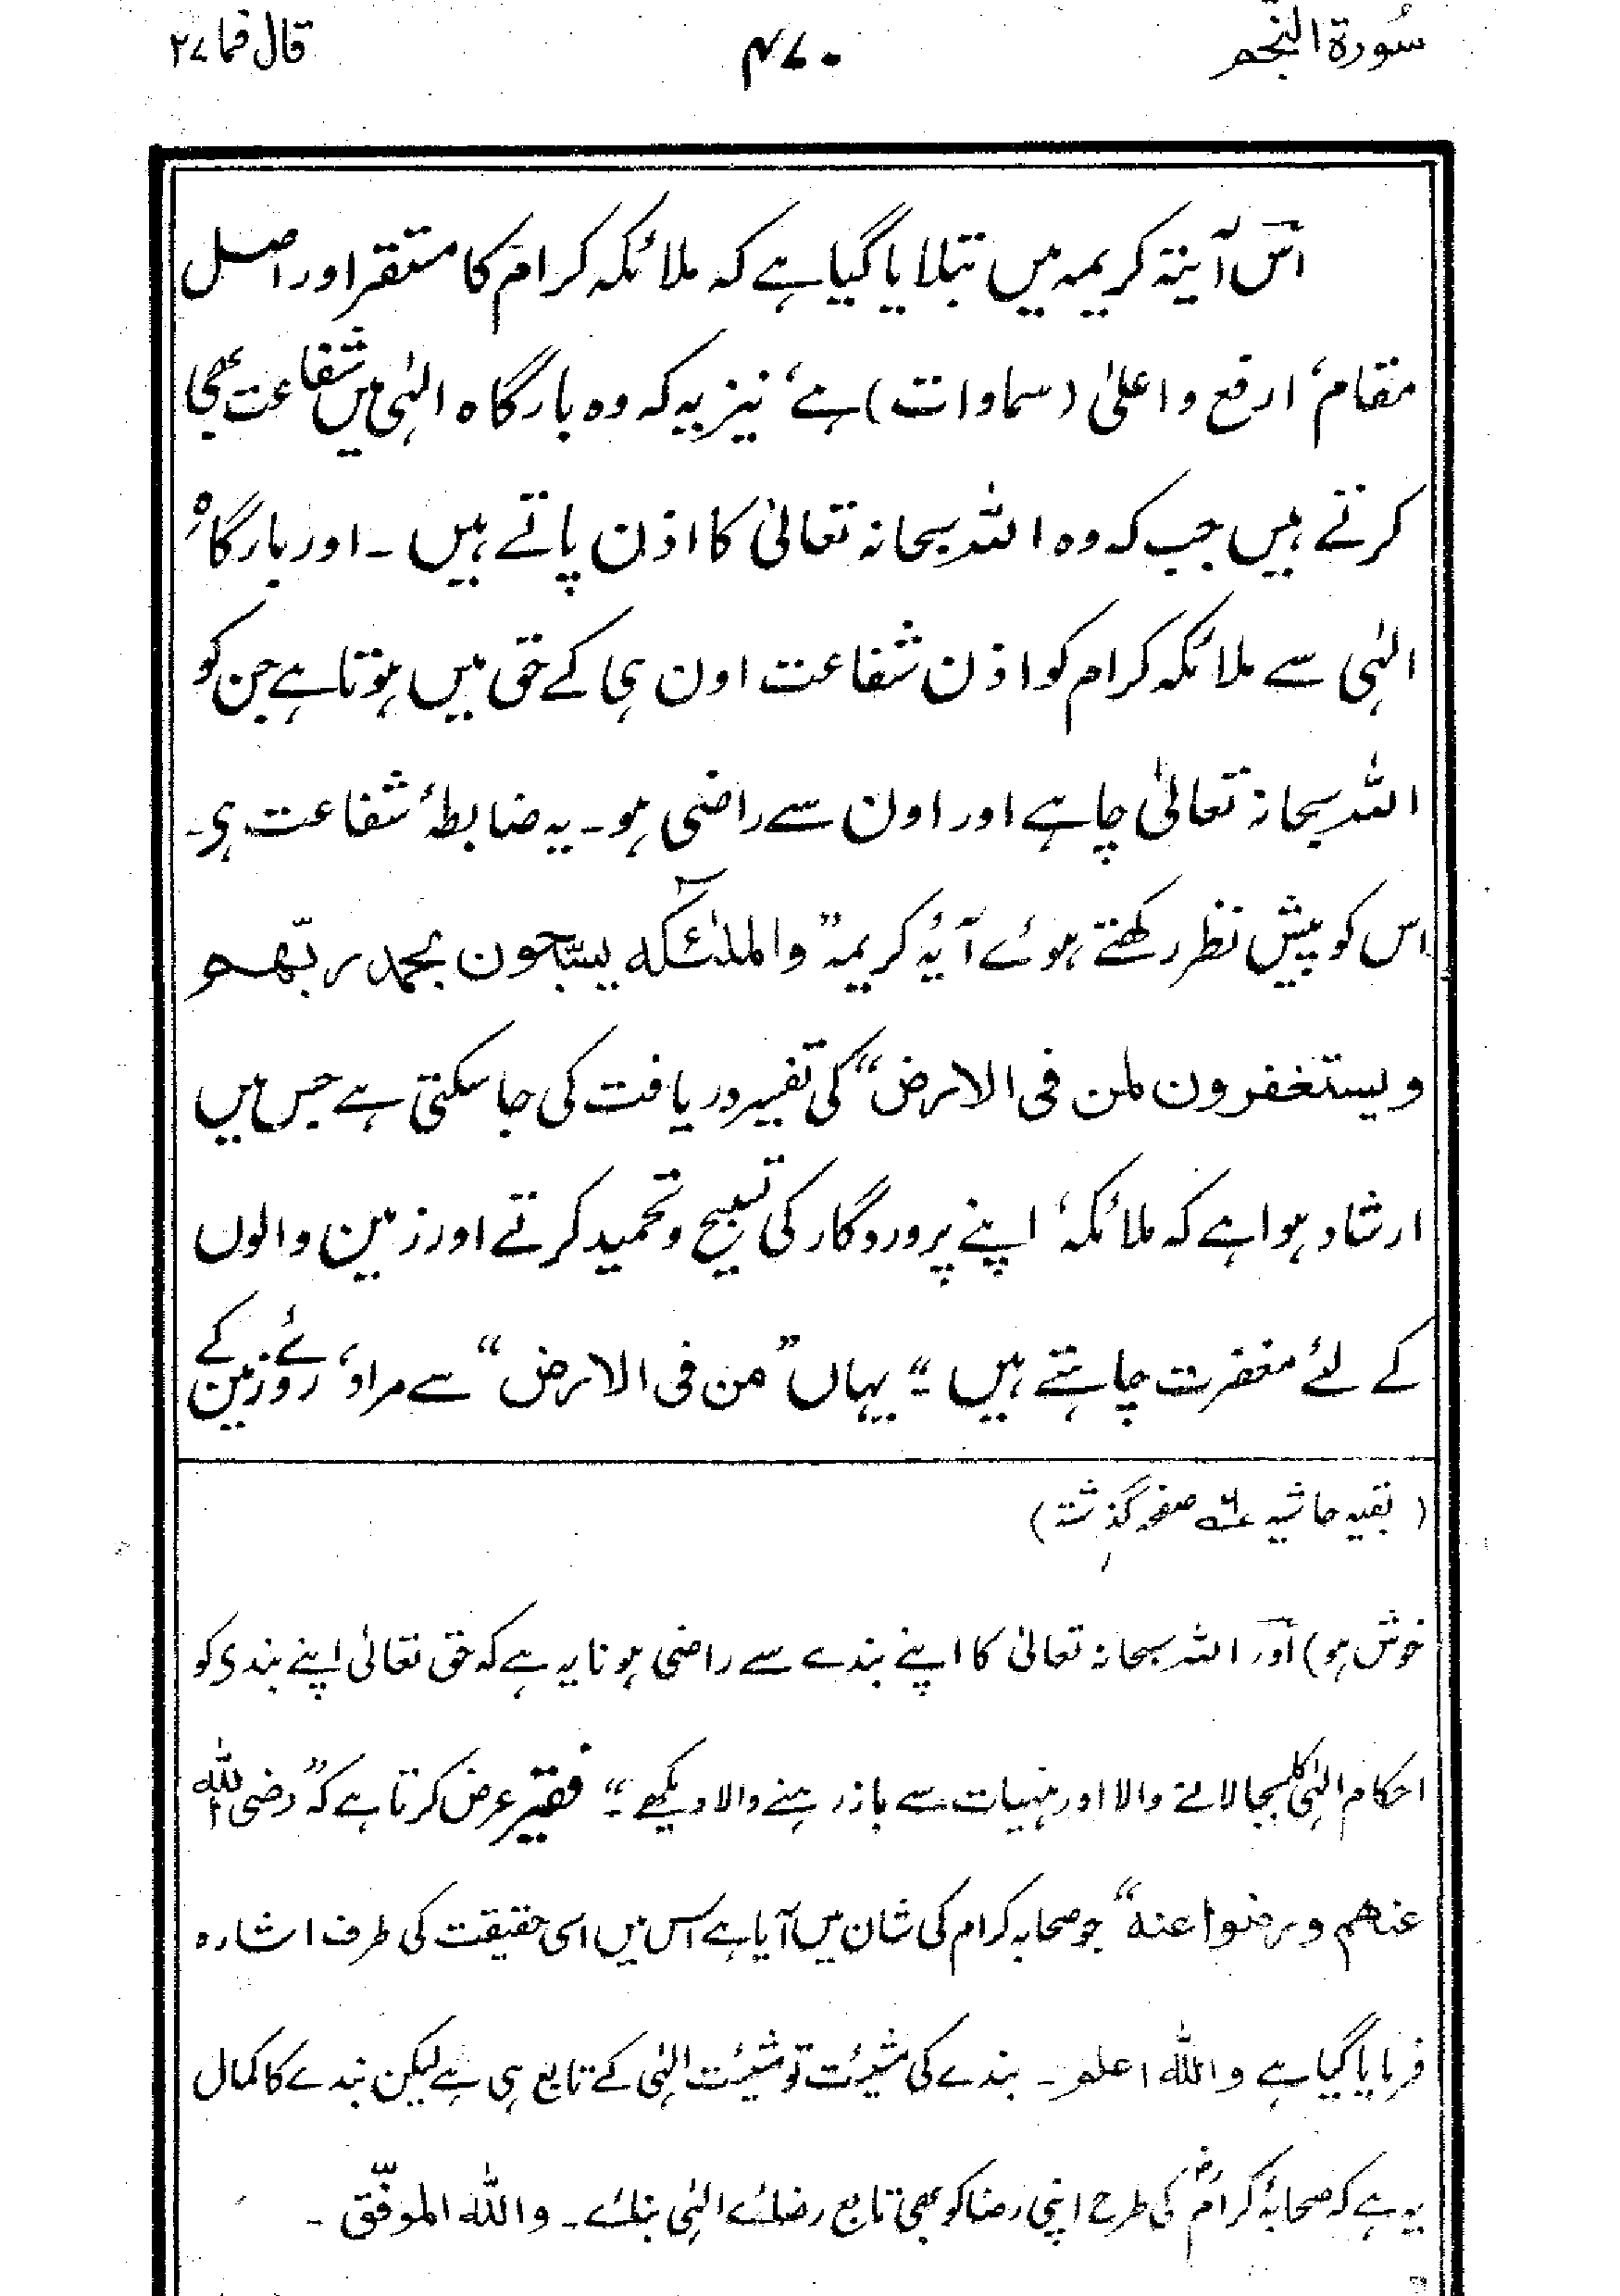 سُورۃ النّجم
۴۷۰
قال فما ۲۷
اس آیتہ کریمہ میں بتلایا گیا ہے کہ ملائکہ کرام کا مستقر اور اصل
مقام، ارفع و اعلیٰ (سماوات) ہے، نیز یہ کہ وہ بارگاہ الٰہی میں شفاعت بھی
کرتے ہیں جب کہ وہ اللہ سبحانہ تعالیٰ کا اذن پاتے ہیں ۔ اور بارگاہِ
الٰہی سے ملائکہ کرام کو اذن شفاعت اون ہی کے حق میں ہوتا ہے جن کو
اللہ سبحانہ تعالیٰ چاہے اور اون سے راضی ہو ۔ یہ ضابطۂ شفاعت ہی۔
اس کو پیش نظر رکھتے ہوئے آیۂ کریمہ ”والملٰئکہ یسبّحون بحمد ربّھم
ویستغفرون لمن فی الارض“ کی تفسیر دریافت کی جا سکتی ہے جس میں
ارشاد ہوا ہے کہ ملائکہ، اپنے پروردگار کی تسبیح و تحمید کرتے اور زمین والوں
کے لئے مغفرت چاہتے ہیں ۔“ یہاں ”من فی الارض“ سے مراد، روئے زمین کے
(بقیہ حاشیہ صفحہ گذشتہ)
خوش ہو) اور اللہ سبحانہ تعالیٰ کا اپنے بندے سے راضی ہونا یہ ہے کہ حق تعالیٰ اپنے بندی کو
احکام الٰہی کا بجا لانے والا اور منہیات سے باز رہنے والا دیکھے ۔“ فقیر عرض کرتا ہے کہ ”رضی اللہ
عنھم ورضوا عنہ“ جو صحابہ کرام کی شان میں آیا ہے اس میں اسی حقیقت کی طرف اشارہ
فرمایا گیا ہے واللہ اعلم ۔ بندے کی مشیئت تو مشیئت الٰہی کے تابع ہی ہے لیکن بندے کا کمال
یہ ہے کہ صحابۂ کرامؓ کی طرح اپنی رضا کو بھی تابع رضائے الٰہی بنائے ۔ واللہ الموفّق ۔